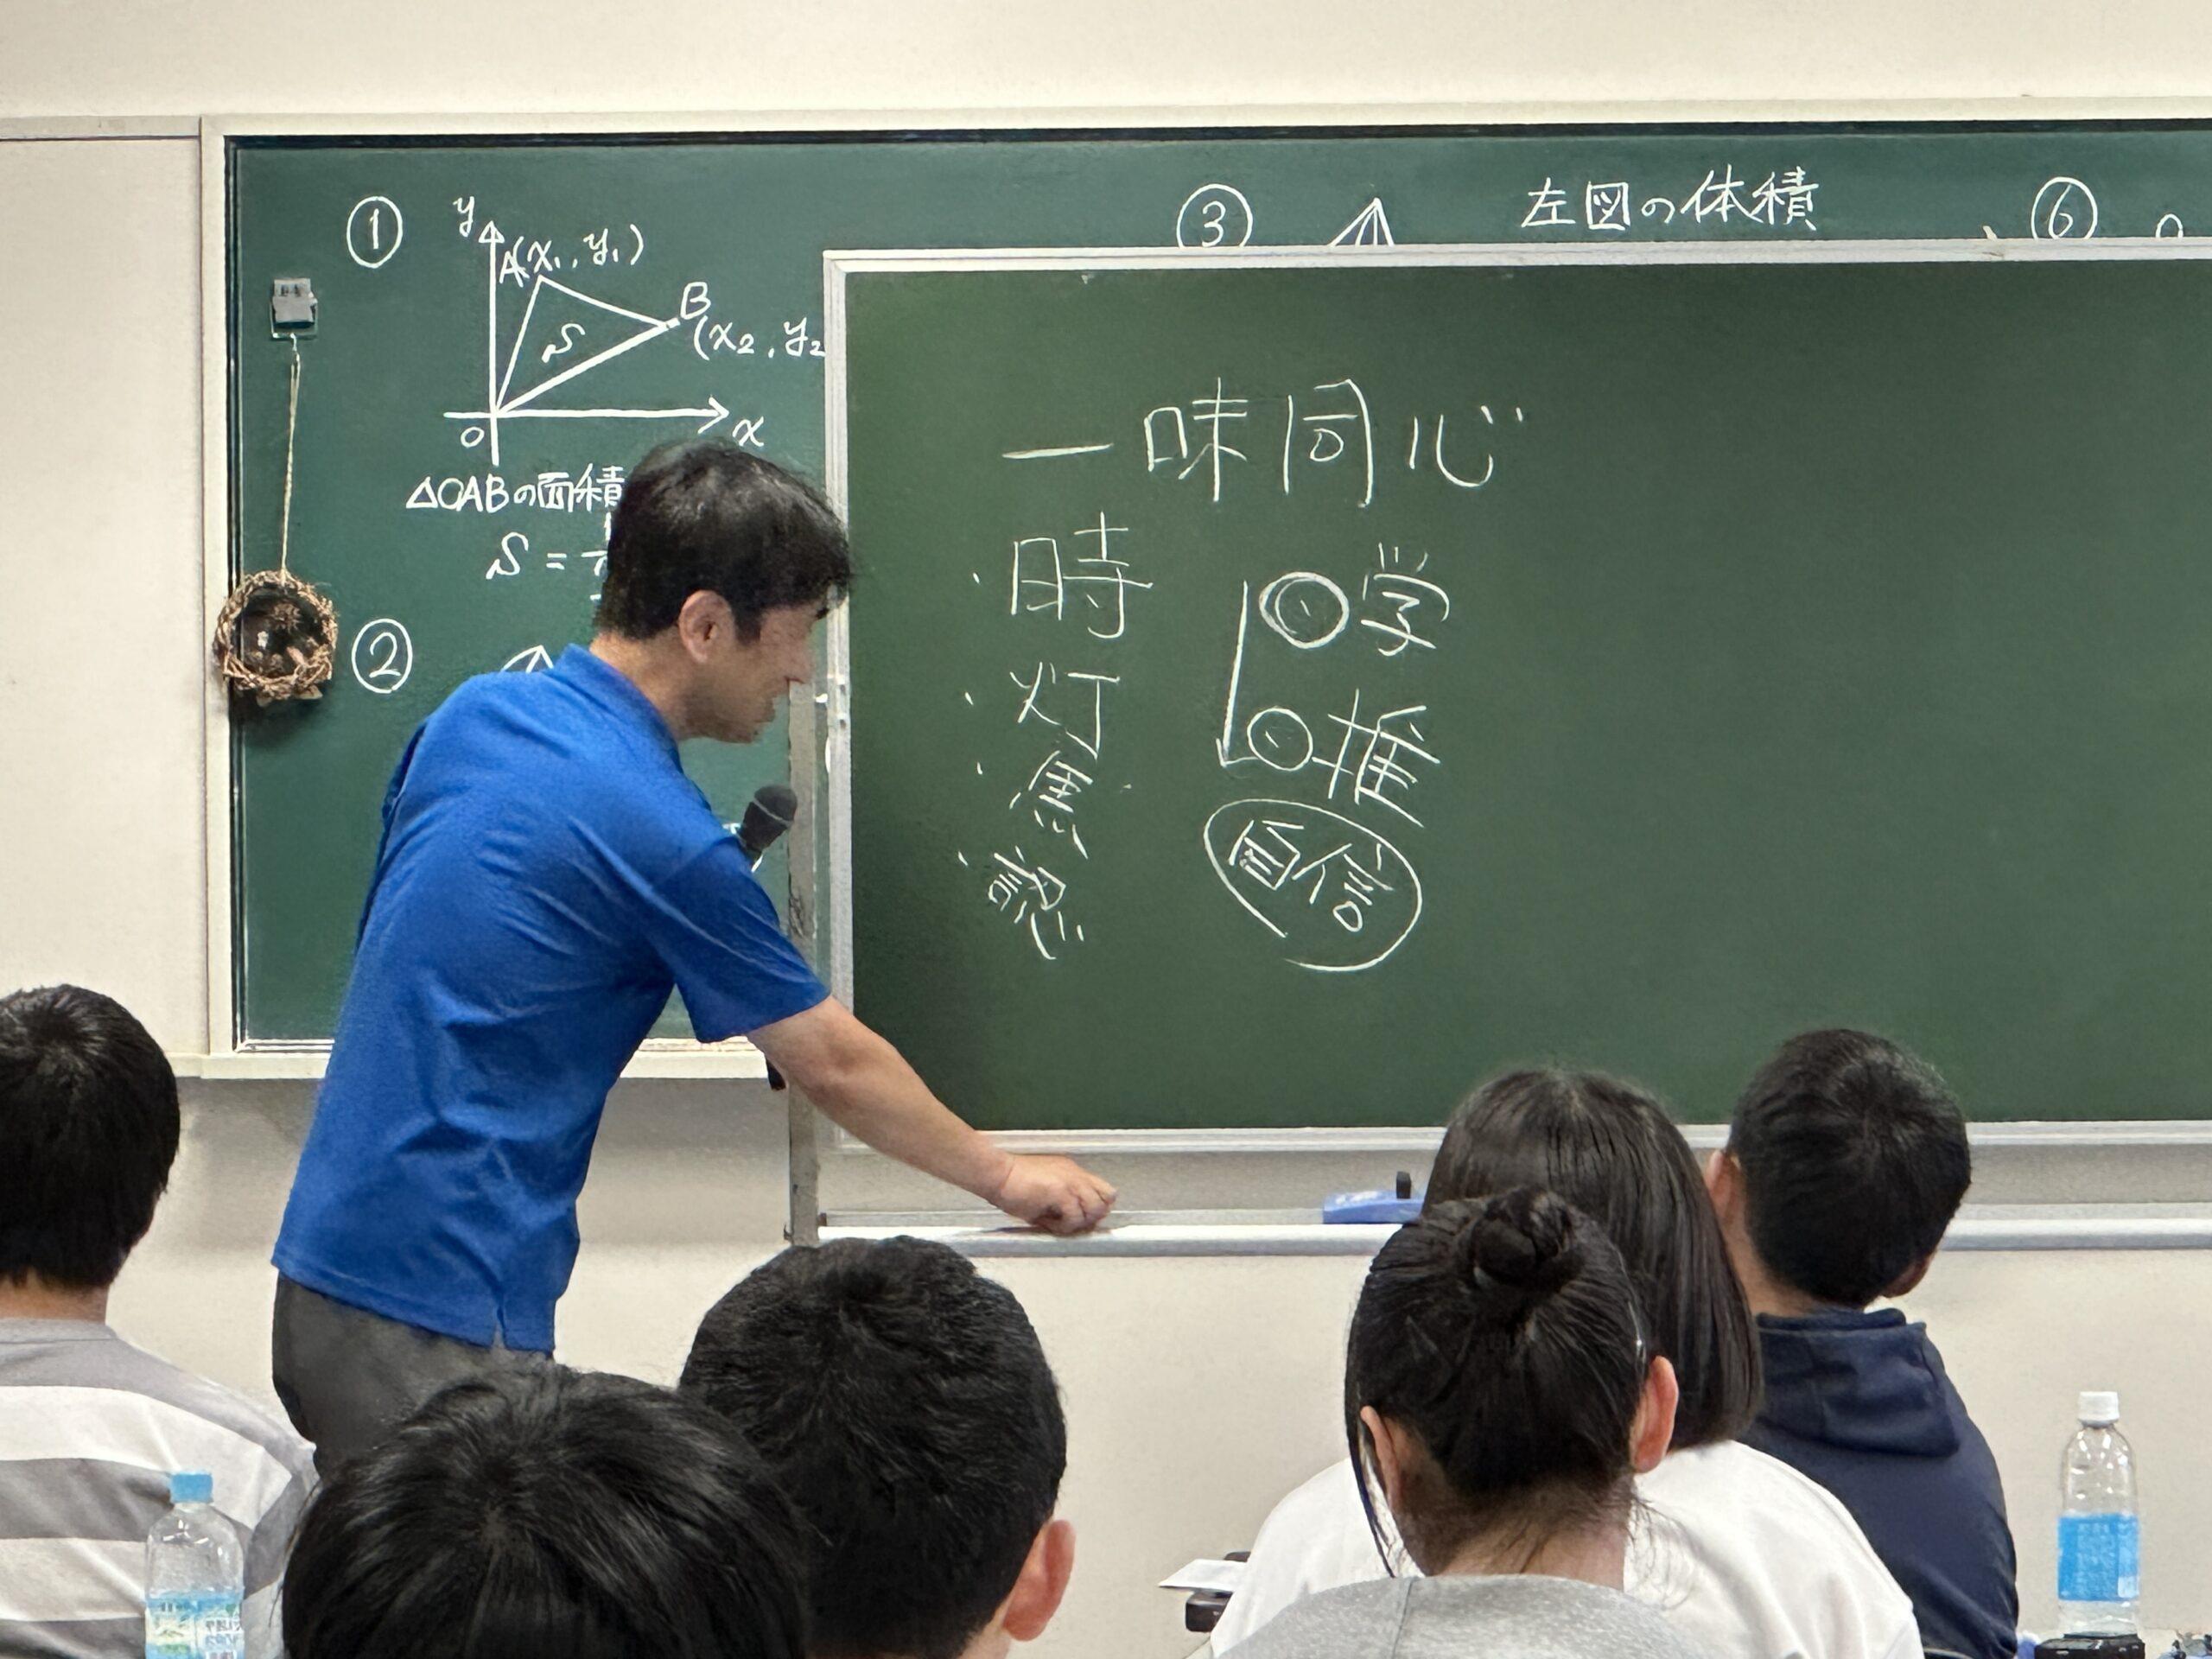 ①
y
A(x₁, y₁)
B
(x₂, y₂
S
O
x
△OABの面積
S =
②
③
左図の体積
⑥
一味同心
・時
・灯
・思
・認
学
推
自信